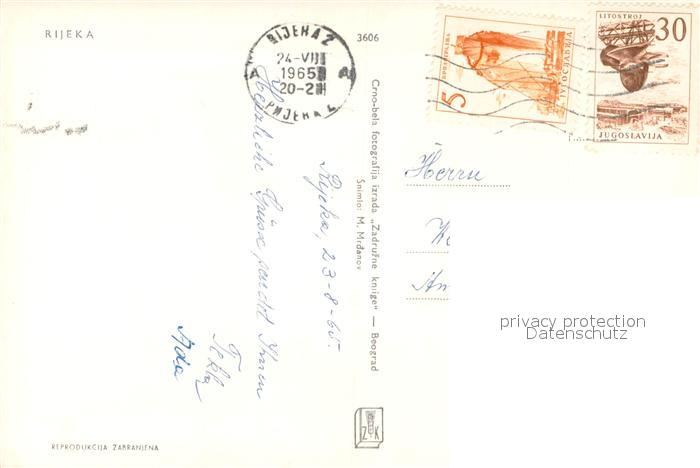 RIJEKA
RIJEKA 2
24-VIII
1965
20-2
РИЈЕКА 2
3606
5
ЈУГОСЛАВИЈА
LITOSTROJ
30
JUGOSLAVIJA
Crno-bela fotografija izrada „Zadružne knjige" — Beograd
Snimio: M. Mrđanov
Rijeka, 23-8-65.
Herzliche Grüsse sendet Ihnen
Tekla
Ada
Herrn
W
An
privacy protection
Datenschutz
Z K
REPRODUKCIJA ZABRANJENA